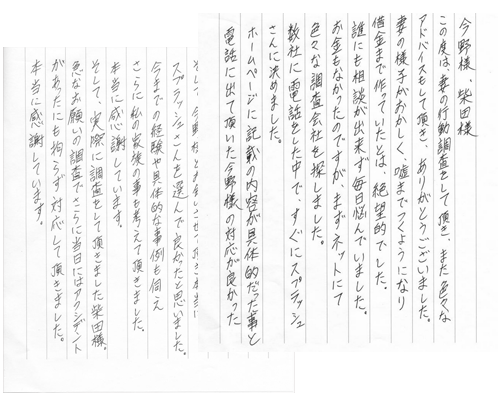 今野様、柴田様
この度は、妻の行動調査をして頂き、また色々な
アドバイスもして頂き、ありがとうございました。
妻の様子がおかしく、嘘までつくようになり
借金まで作っていたとは、絶望的でした。
誰にも相談が出来ず毎日悩んでいました。
お金もなかったのですが、まずネットにて
色々な調査会社を探しました。
数社に電話をした中で、すぐにスプラッシュ
さんに決めました。
ホームページに記載の内容が具体的だった事と
電話に出て頂いた今野様の対応が良かった
スプラッシュさんを選んで良かったと思いました。
今までの経験や具体的な事例も伺え
さらに私の最後の事も考えて頂きました。
本当に感謝しています。
そして、実際に調査をして頂きました柴田様。
急なお願いの調査でさらに当日にはアクシデント
がありたにも拘らず対応して頂きました。
本当に感謝しています。